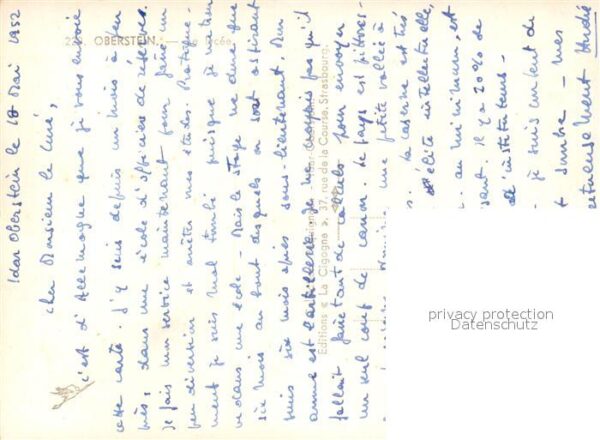 Idar Oberstein le 18 Mai 1952
Cher Monsieur le Curé,
C'est d'Allemagne que je vous envoie
cette carte. J'y suis depuis un mois à peu
près, dans une école d'officiers de réserve.
Je fais mon service maintenant pour faire un
peu diversion et arrêter mes études. Pratique-
ment je suis mal tombé puisque je me
dans une école - Mais le stage ne dure que
six mois au bout desquels on sort aspirant
puis six mois après sous-lieutenant. Mon
arme est l'artillerie je ne croyais pas qu'il
fallait faire tant de calculs pour envoyer
un seul coup de canon. Le pays est pittores-
une petite vallée à
La caserne est très
élite intellectuelle,
au minimum, est
Il y a 20% de
d'instituteurs -
je suis content de
sombre - mes
OBERSTEIN.
Editions « La Cigogne », 37, rue de la Course, Strasbourg.
privacy protection
Datenschutz